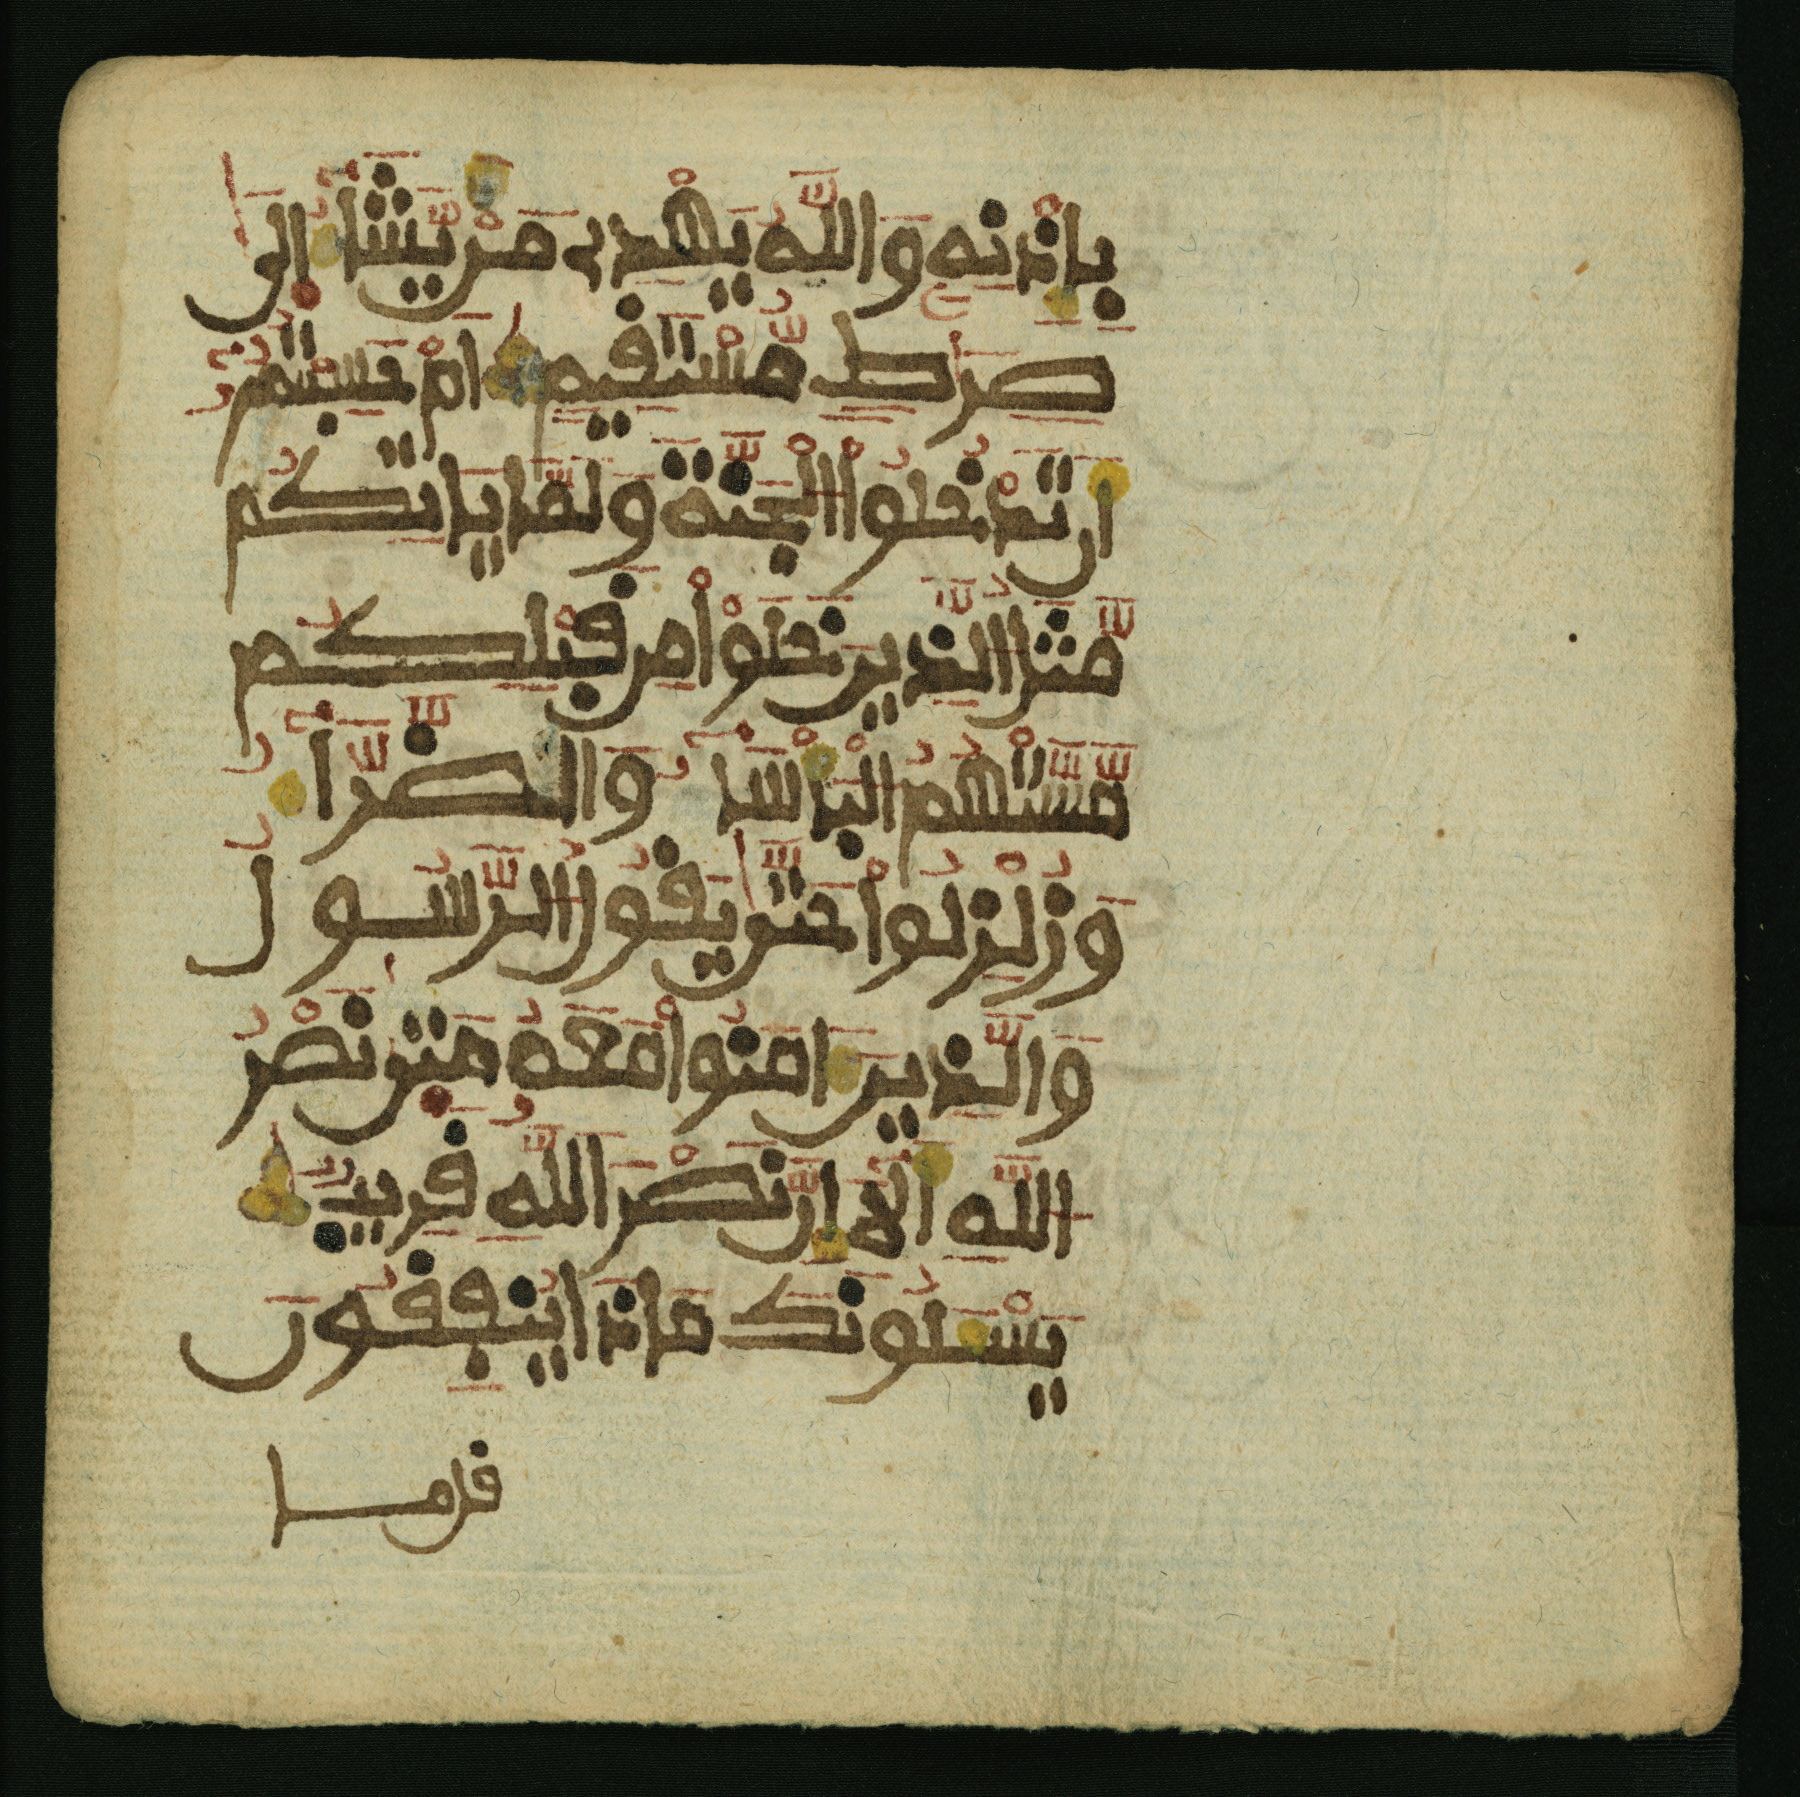 بِإِذْنِهِ وَاللَّهُ يَهْدِي مَنْ يَّشَآءُ إِلَىٰ
صِرَٰطٍ مُّسْتَقِيمٍ أَمْ حَسِبْتُمُ
أَن تَدْخُلُوا۟ الْجَنَّةَ وَلَمَّا يَاتِكُم
مَّثَلُ الَّذِينَ خَلَوْا۟ مِن قَبْلِكُم
مَّسَّتْهُمُ الْبَأْسَآءُ وَالضَّرَّآءُ
وَزُلْزِلُوا۟ حَتَّىٰ يَقُولُ الرَّسُولُ
وَالَّذِينَ ءَامَنُوا۟ مَعَهُۥ مَتَىٰ نَصْرُ
اللَّهِ أَلَآ إِنَّ نَصْرَ اللَّهِ قَرِيبٌ
يَسْـَٔلُونَكَ مَاذَا يُنفِقُونَ
قل ما